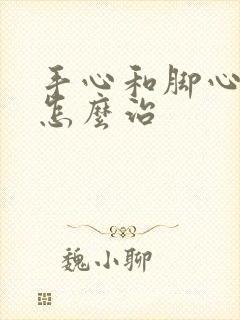 手心和脚心
怎麽治
魏小聊